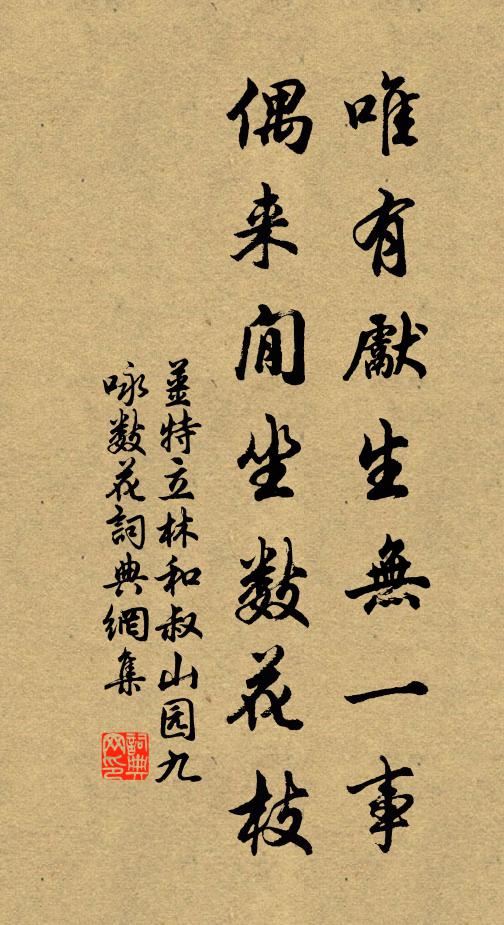 唯有獻生無一事
偶来閒坐數花枝
薑特立林和叔山园九
咏數花詞典網集
詞典网印